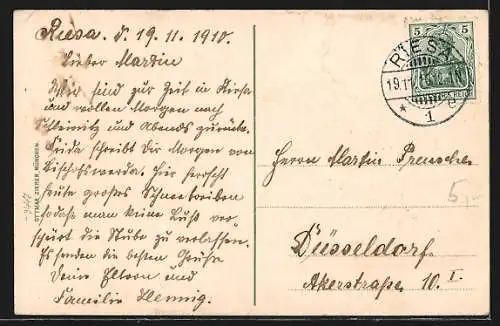 Riesa. d. 19.11.1910.
Lieber Martin
Wir sind zur Zeit in Riesa
und wollen Morgen nach
und Abends zurück.
Frida schreibt Dir Morgen von
Bischofswerda. Hier herrscht
heute großes Schneetreiben
sodass man keine Lust ver-
spürt die Stube zu verlassen.
Es senden die besten Grüße
Deine Eltern und
Familie Hennig.
OTTMAR ZIEHER, MÜNCHEN.
5 5
RIESA
19.11
* 1 e
Herrn Martin
5,-
Düsseldorf.
Akerstraße 10. I.